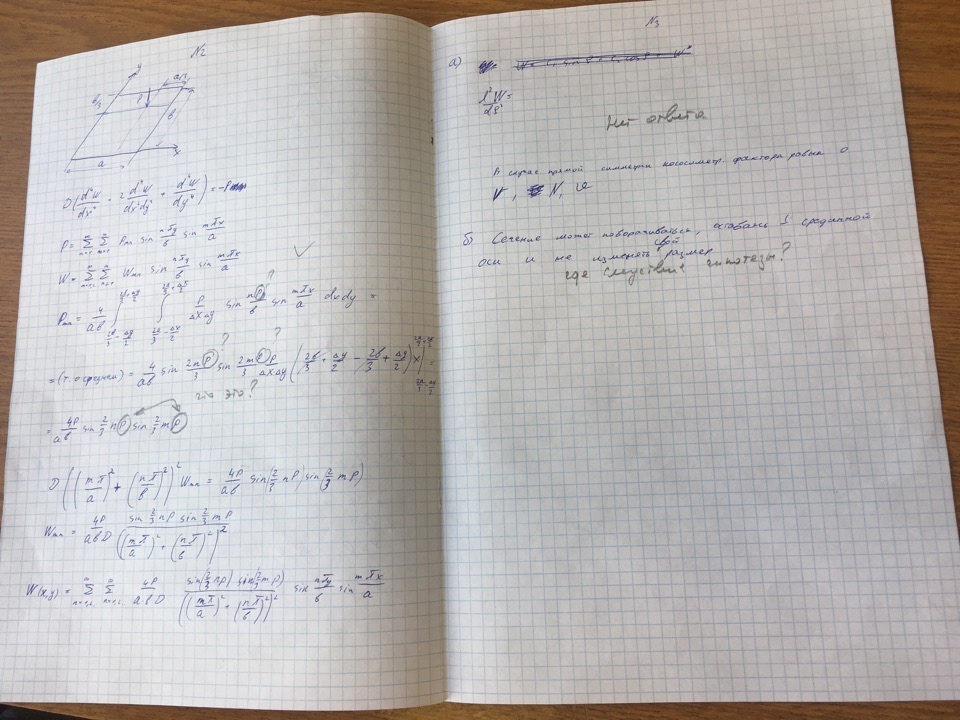 N2
y
a/3
b/3
P
b
a
x
D(d⁴W/dx⁴ + 2 d⁴W/dx²dy² + d⁴W/dy⁴) = -P
P = ∑ ∑ Pmn sin nπy/b sin mπx/a
W = ∑ ∑ Wmn sin nπy/b sin mπx/a
Pmn = 4/ab ∫ ∫ P/ΔxΔy sin nPy/b sin mπx/a dxdy =
? ?
= (т. о средней) = 4/ab sin 2nP/3 sin 2mP/3 P/ΔxΔy (2b/3 + Δy/2 - 2b/3 + Δy/2) x| =
что это?
= 4P/ab sin 2/3 nP sin 2/3 mP
D((mπ/a)² + (nπ/b)²)² Wmn = 4P/ab sin(2/3 nP) sin(2/3 mP)
Wmn = 4P/abD sin 2/3 nP sin 2/3 mP / ((mπ/a)² + (nπ/b)²)²
W(x,y) = ∑ ∑ 4P/abD sin(2/3 nP) sin(2/3 mP) / ((mπ/a)² + (nπ/b)²)² sin nπy/b sin mπx/a
N3
а)
d²W/dφ² =
Нет ответа
В случае прямой симметрии кососиметр. фактора равны 0
V, N, v
б) Сечение может поворачиваться, оставаясь ⊥ срединной
оси и не изменять свой размер
где следствие гипотезы?